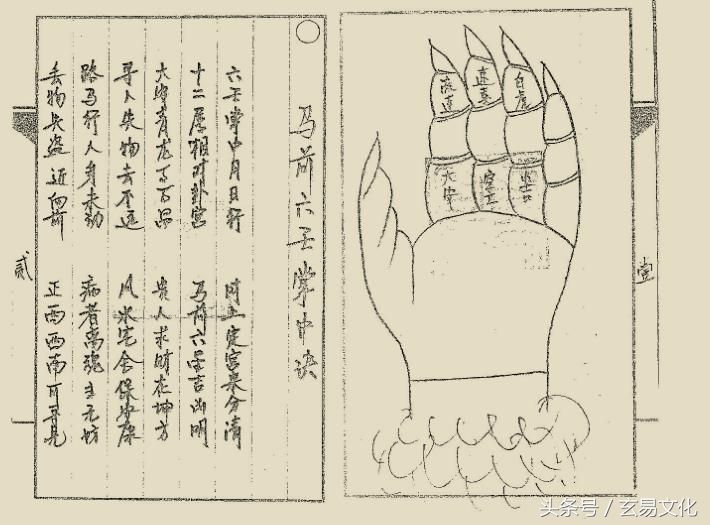 马前六壬掌中诀
六壬掌中月日行 时上定宫要分清
十二属相对卦宫 马前六壬吉凶明
大安青龙百百 贵人求财在坤方
寻人失物去不远 风水宅舍保安康
路马行人身未动 病者离魂主无坊
丢物失盗近向前 正西西南可寻见
流连
速喜
白虎
大安
空亡
小吉
壹
贰
头条号 / 玄易文化